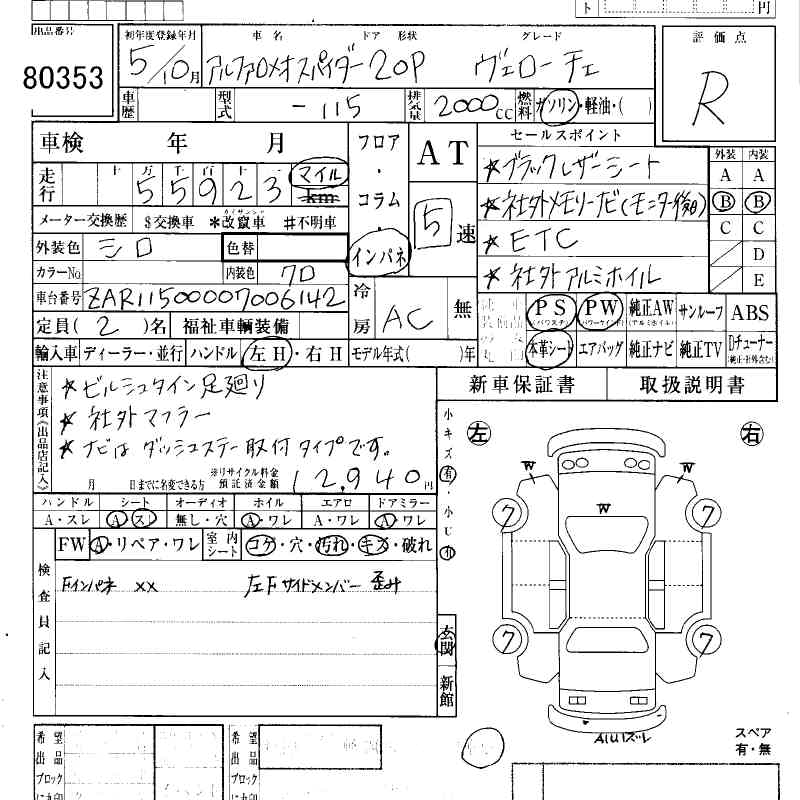 出品番号
80353
初年度登録年月
5/10月
車名 ドア 形状
アルファロメオスパイダー 20P
グレード
ヴェローチェ
評価点
R
車歴
型式
-115
排気量
2000cc
燃料
ガソリン・軽油・( )
車検 年 月
フロア・コラム・インパネ
AT
5速
セールスポイント
★ブラックレザーシート
★社外メモリーナビ(モニター後日)
★ETC
★社外アルミホイル
外装 内装
A A
B B
C C
D
E
走行
十万千百十
55923
マイル
km
メーター交換歴 $交換車 *改竄車 #不明車
外装色 シロ
色替
カラーNo.
内装色 クロ
車台番号 ZAR11500007006142
定員(2)名
福祉車輌装備
冷房 AC 無
輸入車 ディーラー・並行
ハンドル 左H・右H
モデル年式( )年
PS
(パワステ)
PW
(パワーウインド)
純正AW
(アルミホイル)
サンルーフ
ABS
本革シート
エアバッグ
純正ナビ
純正TV
Dチューナー
(純正・社外含む)
新車保証書
取扱説明書
注意事項《出品店記入》
★ビルシュタイン足廻り
★社外マフラー
★ナビは ダッシュステー取付タイプです。
月 日までに名変できる方
※リサイクル料金
預託済金額 12,940円
ハンドル シート オーディオ ホイル エアロ ドアミラー
A・スレ A・スレ 無し・穴 A・ワレ A・ワレ A・ワレ
FW A・リペア・ワレ
室内シート コゲ・穴・汚れ・キズ・破れ
検査員記入
Fインパネ ××
左FサイドメンバーI歪み
小キズ有・小U有
玄関
新館
左
右
W
W
W
7
7
7
7
A1U1ズレ
スペア
有・無
希望出品
ブロック
希望出品
ブロック
円